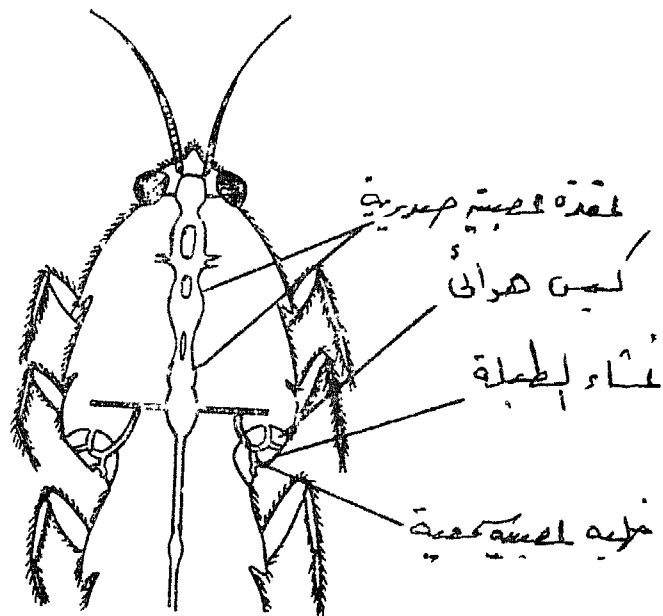 العقدة العصبية صدرية
كيس هوائى
غشاء الطبلة
خلية عصبية سمعية